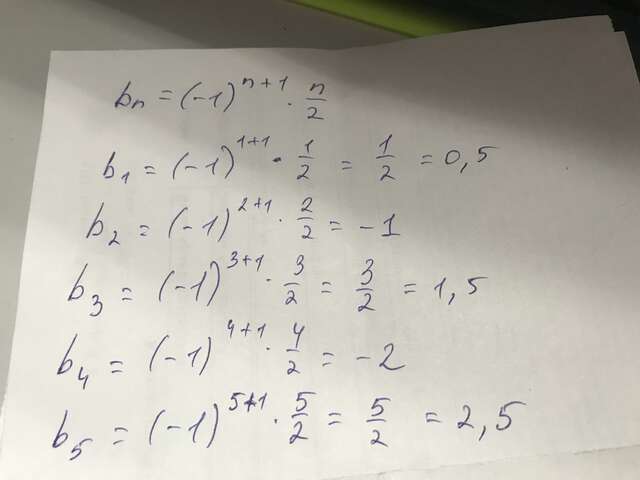 bₙ = (-1)ⁿ⁺¹ · n/2
b₁ = (-1)¹⁺¹ · 1/2 = 1/2 = 0,5
b₂ = (-1)²⁺¹ · 2/2 = -1
b₃ = (-1)³⁺¹ · 3/2 = 3/2 = 1,5
b₄ = (-1)⁴⁺¹ · 4/2 = -2
b₅ = (-1)⁵⁺¹ · 5/2 = 5/2 = 2,5